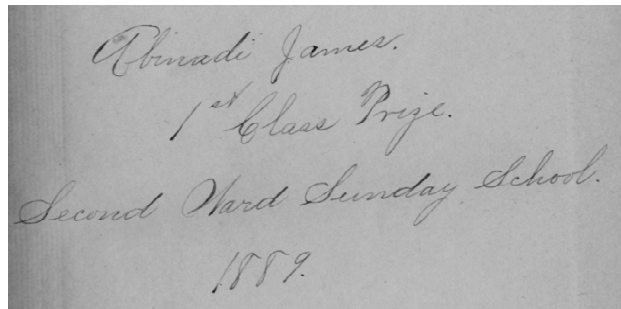 Abinadi James.
1st Class Prize.
Second Ward Sunday School.
1889.